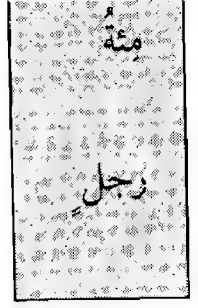 مِئةُ
رجلٍ